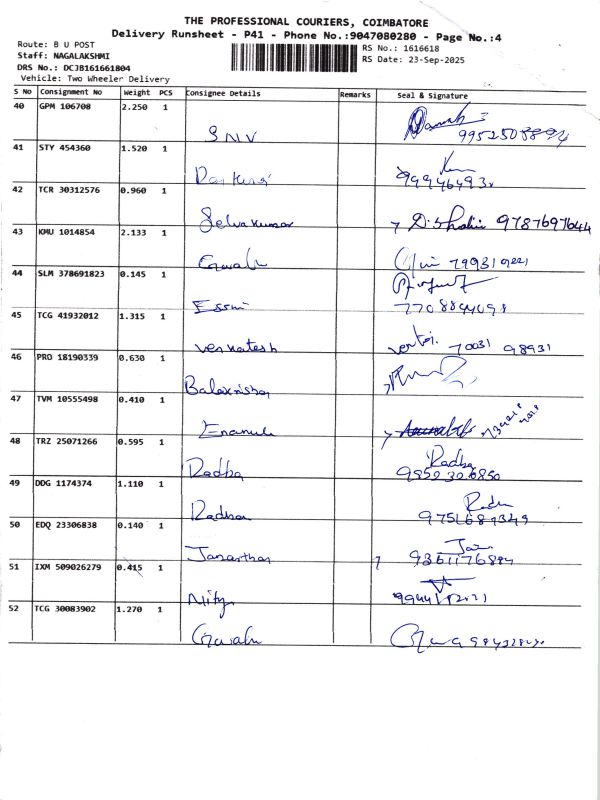 THE PROFESSIONAL COURIERS, COIMBATORE
Delivery Runsheet - P41 - Phone No.:9047080280 - Page No.:4
Route: B U POST
RS No.: 1616618
Staff: NAGALAKSHMI
RS Date: 23-Sep-2025
DRS No.: DCJB161661804
Vehicle: Two Wheeler Delivery
S No Consignment No Weight PCS Consignee Details Remarks Seal & Signature
40 GPM 106708 2.250 1
SNV 9952508894
41 STY 454360 1.520 1
42 TCR 30312576 0.960 1
Selvakumar D. Shalini 9787697644
43 KMU 1014854 2.133 1
44 SLM 378691823 0.145 1
Essmi
45 TCG 41932012 1.315 1
venkatesh 70031 98931
46 PRO 18190339 0.630 1
Balakrishnan
47 TVM 10555498 0.410 1
48 TRZ 25071266 0.595 1
Radha Radha
49 DDG 1174374 1.110 1
Radha 9751689349
50 EDQ 23306838 0.140 1
Janarthan
51 IXM 509026279 0.415 1
Nitya
52 TCG 30083902 1.270 1